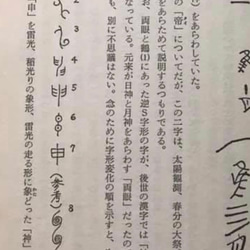 ）をあらわしていた。
の「帝」についてだが、この二字は、太陽観測、春分の大祭
をあらためて説明するつもりである。
お、両眼と鶴(1)に逆S字形の字が、後世の漢字では「
なっている。元来が日神と月神をあらわす「両眼」だったの
も、別に不思議はない。念のために字形変化の順を示すと、
1 2 3 4 5 6 申 7 (参考) 8
申」を雷光、稲光りの象形、雷光の走る形に象どった「神」